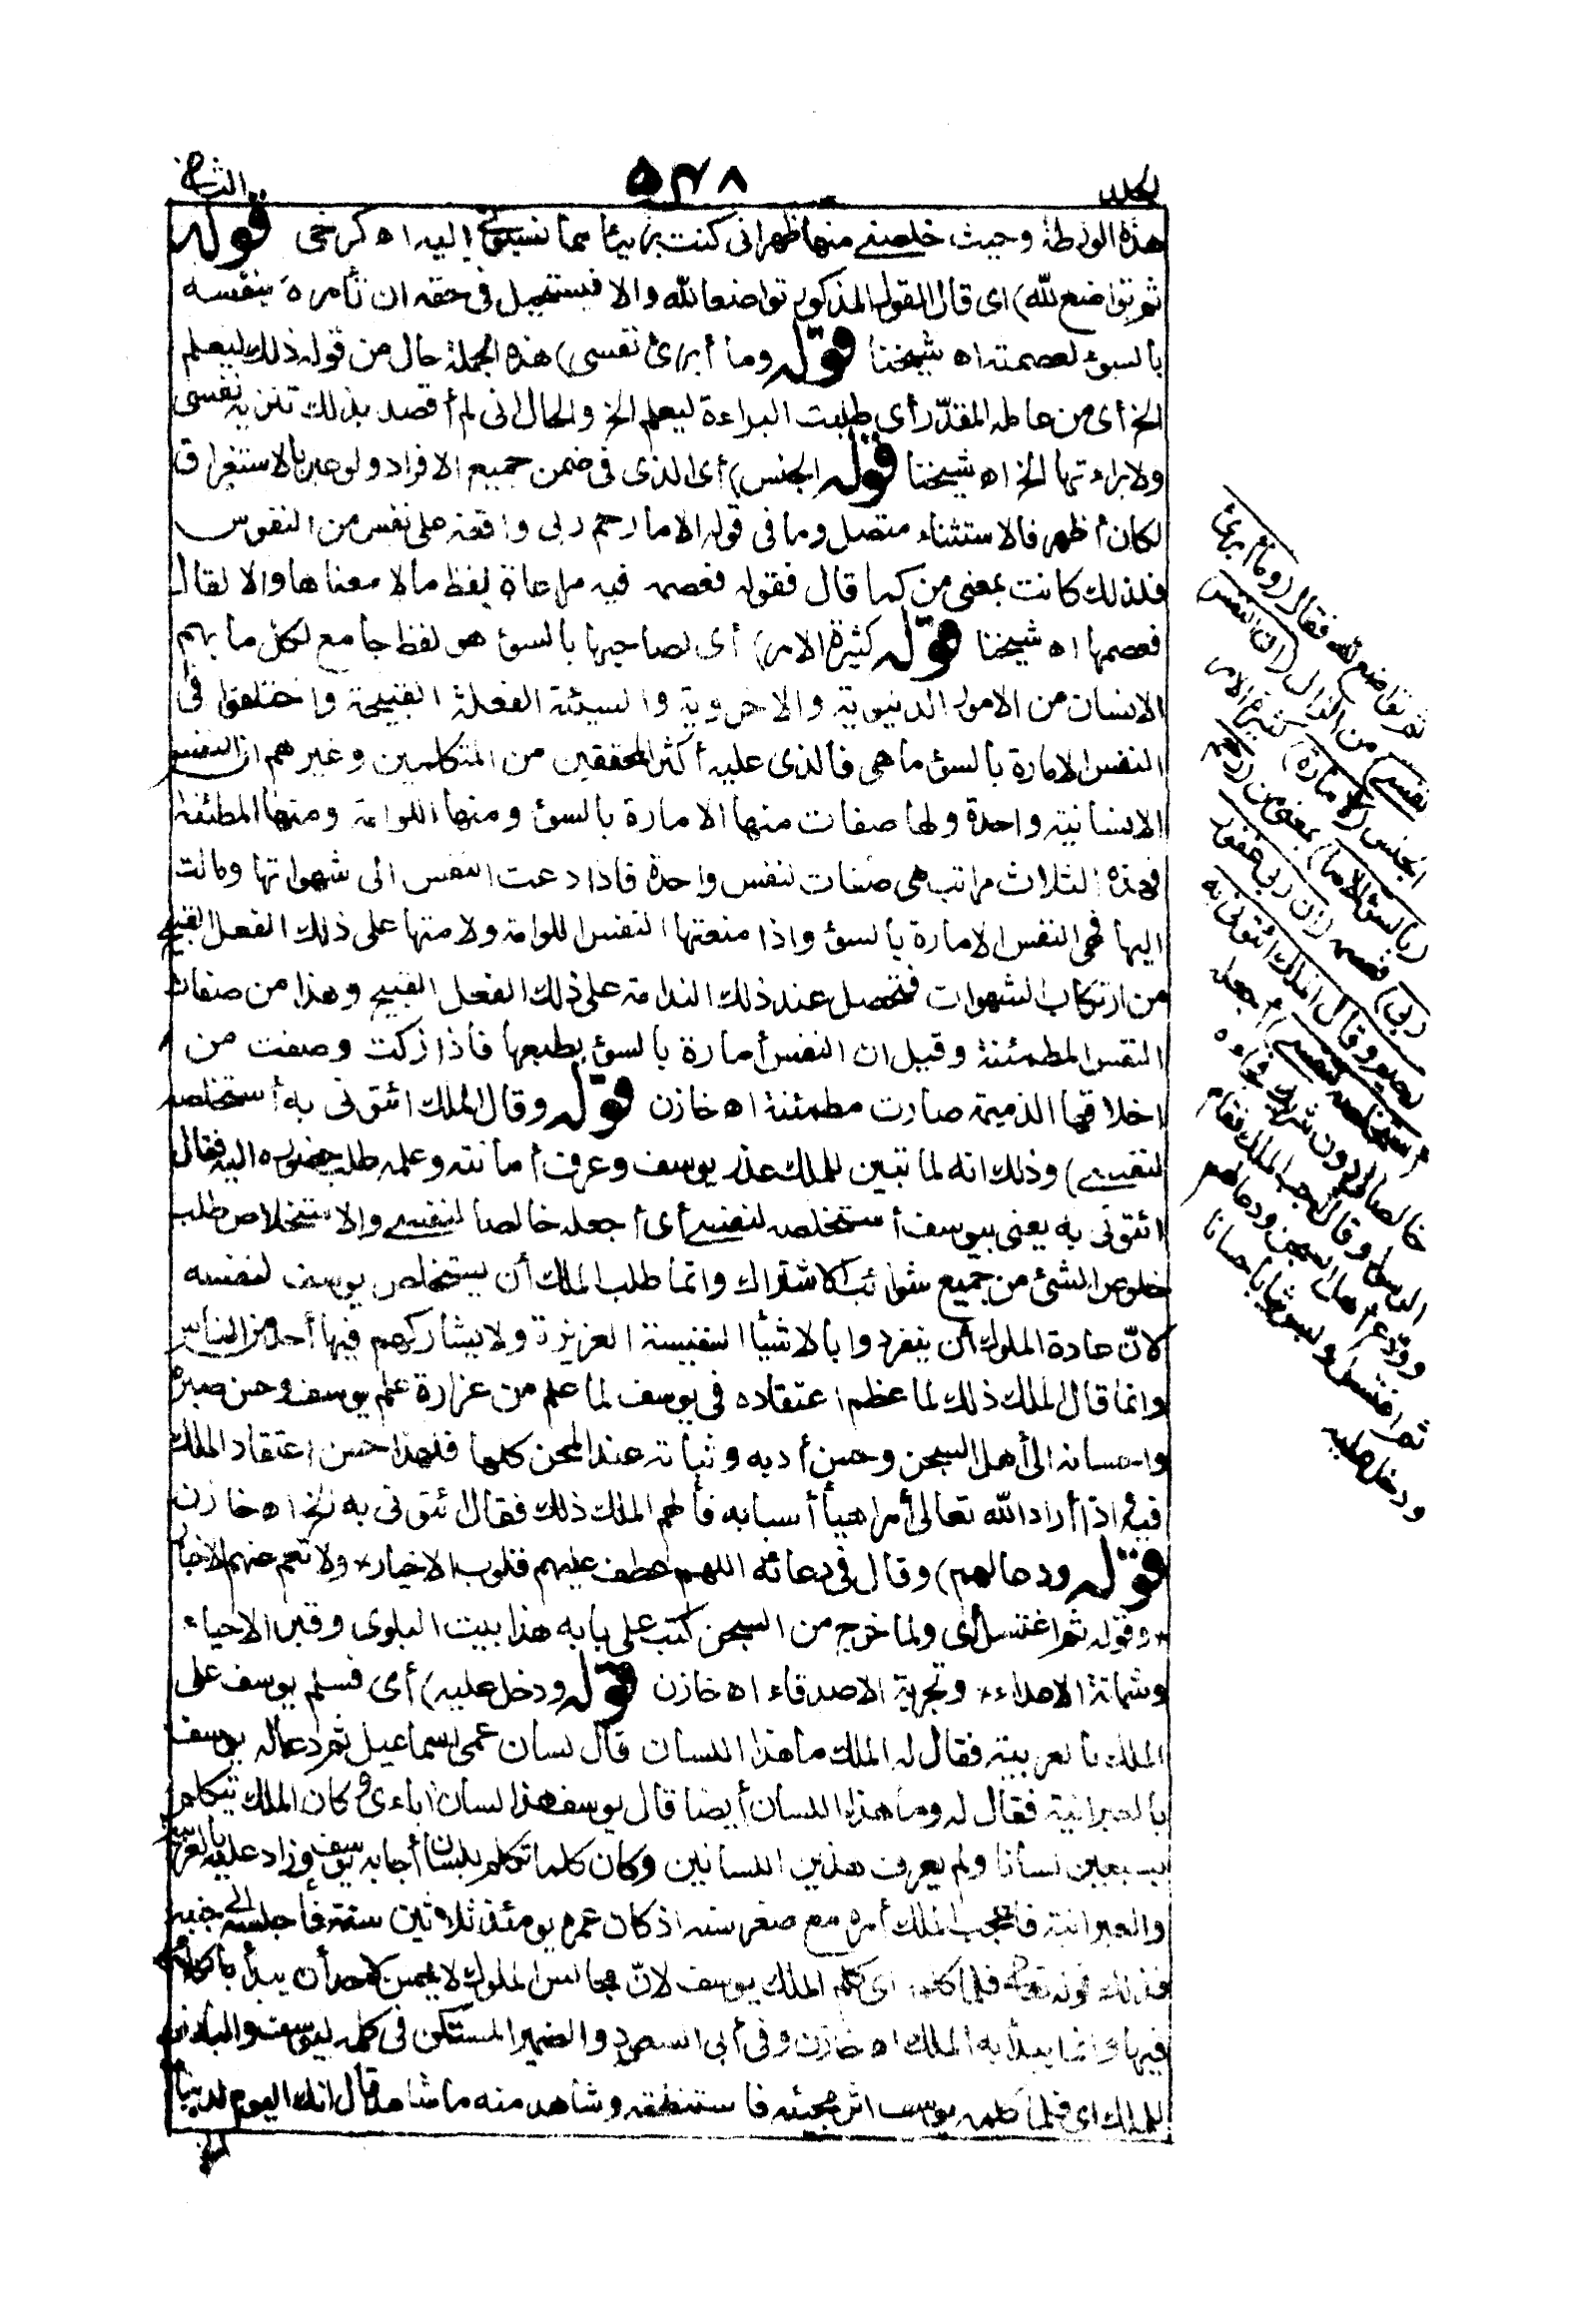 الجلد ٥٤٨ الثانى
هذه الورطة وحيث خلصنى منها ظهر انى كنت بريئا مما نسبتمونى إليه اه كرخى قوله
ثم تواضع لله) اى قال القول المذكور تواضعا لله والا فيستحيل فى حقه ان تأمره نفسه
بالسوء لعصمته اه شيخنا قوله وما أبرئ نفسى) هذه الجملة حال من قوله ذلك ليعلم
الخ أى من عامله المقدّر أى طلبت البراءة ليعلم الخ والحال انى لم أقصد بذلك تنزيه نفسى
ولا براءتها الخ اه شيخنا قوله الجنس) أى الذى فى ضمن جميع الافراد ولو عبر بالاستغراق
لكان أظهر فالاستثناء متصل وما فى قوله الا ما رحم ربى واقعة على نفس من النفوس
فلذلك كانت بمعنى من كما قال فقوله فعصمه فيه مراعاة لفظ ما لا معناها والا لقال
فعصمها اه شيخنا قوله كثيرة الامر) أى لصاحبها بالسوء هو لفظ جامع لكل ما يهم
الانسان من الامور الدنيوية والاخروية والسيئة الفعلة القبيحة واختلفوا فى
النفس الامارة بالسوء ما هى فالذى عليه أكثر المحققين من المتكلمين وغيرهم ان النفس
الانسانية واحدة ولها صفات منها الامارة بالسوء ومنها اللوامة ومنها المطمئنة
فهذه الثلاث مراتب هى صفات لنفس واحدة فاذا دعت النفس الى شهواتها ومالت
اليها فهى النفس الامارة بالسوء واذا منعتها النفس اللوامة ولامتها على ذلك الفعل القبيح
من ارتكاب الشهوات فتحصل عند ذلك الندامة على ذلك الفعل القبيح وهذا من صفات
النفس المطمئنة وقيل ان النفس أمارة بالسوء بطبعها فاذا زكت وصفت من
اخلاقها الذميمة صارت مطمئنة اه خازن قوله وقال الملك ائتونى به أستخلصه
لنفسى) وذلك انه لما تبين للملك عذر يوسف وعرف أمانته وعلمه طلب حضوره اليه فقال
ائتونى به يعنى بيوسف أستخلصه لنفسى أى أجعله خالصا لنفسى والاستخلاص طلب
خلوص الشئ من جميع شوائب الاشتراك وانما طلب الملك أن يستخلص يوسف لنفسه
لانّ عادة الملوك أن ينفردوا بالاشيأ النفيسة العزيزة ولا يشاركهم فيها أحد من الناس
وانما قال الملك ذلك لما عظم اعتقاده فى يوسف لما علم من غزارة علم يوسف وحسن صبره
واحسانه الى أهل السجن وحسن أدبه وثباته عند المحن كلها فلهذا حسن اعتقاد الملك
فيه اذا أراد الله تعالى أمرا هيأ أسبابه فألهم الملك ذلك فقال ائتونى به الخ اه خازن
قوله ودعا لهم) وقال فى دعائه اللهم اعطف عليهم قلوب الاخيار * ولا تعم عنهم الاخبار
* وقوله ثم اغتسل أى ولما خرج من السجن كتب على بابه هذا بيت البلوى وقبر الاحياء
وشماتة الاعداء * وتجربة الاصدقاء اه خازن قوله ودخل عليه) أى فسلم يوسف على
الملك بالعربية فقال له الملك ما هذا اللسان قال لسان عمى اسماعيل ثم دعا له يوسف
بالعبرانية فقال له وما هذا اللسان أيضا قال يوسف هذا لسان اباءى وكان الملك يتكلم
بسبعين لسانا ولم يعرف هذين اللسانين وكان كلما تكلم بلسان أجابه يوسف وزاد عليه بالعربية
والعبرانية فأعجب الملك أمره مع صغر سنه اذ كان عمره يومئذ ثلاثين سنة فأجلسه الى جنبه
فذلك قوله تعالى فلما كلمه أى كلم الملك يوسف لانّ مجالس الملوك لا يحسن لاحد أن يبدأ بالكلام
فيها وانما يبدأ به الملك اه خازن وفى أبى السعود والضمير المستكن فى كلمه ليوسف والبارز
للملك اى فلما كلمه يوسف اثر مجيئه فاستنطقه وشاهد منه ما شاهد قال انك اليوم لدينا
الخ
ثم تواضع لله فقال (وما أبرئ
نفسى) من الزلل (ان النفس)
الجنس (لامارة) كثيرة الامر
(بالسوء الا ما) بمعنى من (رحم
ربى) فعصمه (ان ربى غفور
رحيم وقال الملك ائتونى به
أستخلصه لنفسى) أجعله
خالصا لى دون شريك فجاءه
الرسول وقال أجب الملك فقام
وودع أهل السجن ودعا لهم
ثم اغتسل ولبس ثيابا حسانا
ودخل عليه